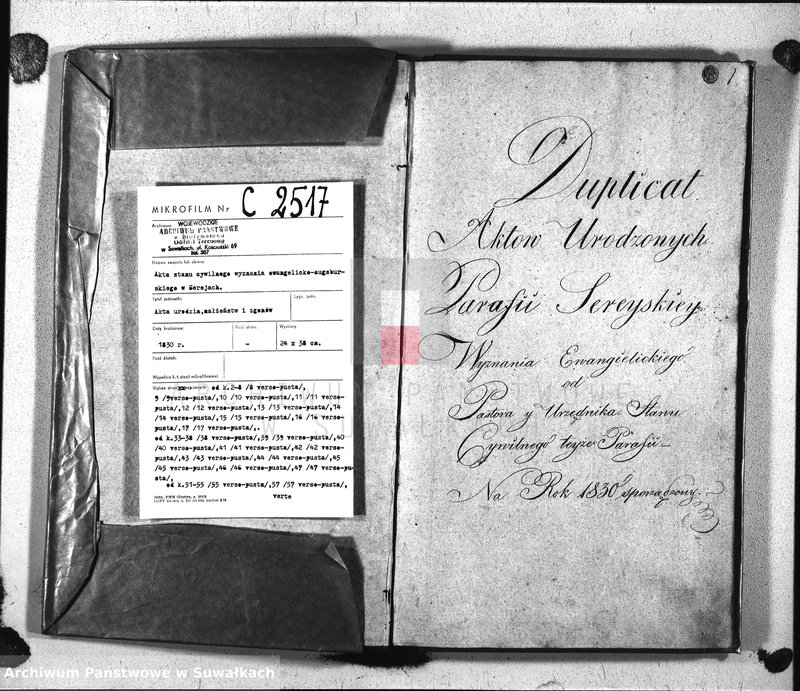 MIKROFILM Nr C 2517
Archiwum
WOJEWÓDZKIE
ARCHIWUM PAŃSTWOWE
w Białymstoku
Oddział Terenowy
w Suwałkach, ul. Kościuszki 69
tel. 307
Nazwa zespołu lub zbioru
Akta stanu cywilnego wyznania ewangelicko-augsbur-
skiego w Serejach.
Tytuł jednostki
Sygn. jedn.
Akta urodzin,małżeństw i zgonów
Daty krańcowe:
Ilość stron:
Wymiary
1830 r.
-
24 x 38 cm.
Ilość klatek:
Wypełnia k. t. stacji mikrofilmowej
Wykaz stron zapisanych od k.2-8 /8 verse-pusta/,
9 /9verse-pusta/,10 /10 verse-pusta/,11 /11 verse-
pusta/,12 /12 verse-pusta/,13 /13 verse-pusta/,14
/14 verse-pusta/,15 /15 verse-pusta/,16 /16 verse-
pusta/,17 /17 verse-pusta/,.
od k.33-38 /38 verse-pusta/,39 /39 verse-pusta/,40
/40 verse-pusta/,41 /41 verse-pusta/,42 /42 verse-
pusta/,43 /43 verse-pusta/,44 /44 verse-pusta/,45
/45 verse-pusta/,46 /46 verse-pusta/,47 /47 verse-pu-
sta/,
od k.51-55 /55 verse-pusta/,57 /57 verse-pusta/,
verte
1
Duplicat
Aktow Urodzonych
Parafii Sereyskiey
Wyznania Ewangielickiego
od
Pastora y Urzędnika Stanu
Cywilnego teyże Parafii
Na Rok 1830 sporządzony
Archiwum Państwowe w Suwałkach